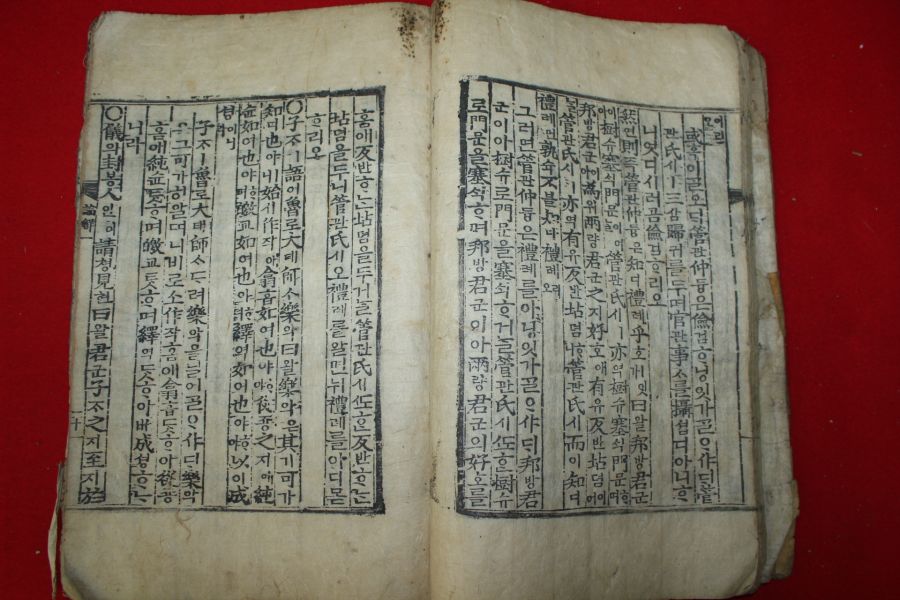 或혹이ᄀᆞᆯ오ᄃᆡ管관仲듕은儉검ᄒᆞ닝잇가ᄀᆞᆯᄋᆞ샤ᄃᆡ管
관氏시ㅣ三삼歸귀를두며官관事ᄉᆞ를攝셥디아니ᄒᆞ
니엇디시러곰儉검ᄒᆞ리오
然연則즉管관仲듕은知디禮례乎호ㅣ잇가曰왈邦방君군
이樹슈塞ᄉᆡᆨ門문이어ᄂᆞᆯ管관氏시ㅣ亦역樹슈塞ᄉᆡᆨ門문ᄒᆞ며
邦방君군이아爲위兩량君군之지好호애有유反반坫뎜이어
ᄂᆞᆯ管관氏시ㅣ亦역有유反반坫뎜ᄒᆞ니管관氏시而이知디
禮례면孰슉不블知디禮례오
그러면管관仲듕은禮례를아닝잇가ᄀᆞᆯᄋᆞ샤ᄃᆡ邦방君
군이아樹슈로門문을塞ᄉᆡᆨᄒᆞ거ᄂᆞᆯ管관氏시ㅣᄯᅩᄒᆞᆫ樹슈
로門문을塞ᄉᆡᆨᄒᆞ며邦방君군이아兩량君군의好호를
홈애反반ᄒᆞᄂᆞᆫ坫뎜을두거ᄂᆞᆯ管관氏시ㅣᄯᅩᄒᆞᆫ反반ᄒᆞᄂᆞᆫ
坫뎜을두니管관氏시오禮례를알면뉘禮례를아디몯
ᄒᆞ리오
○子ᄌᆞㅣ語어魯로大태師ᄉᆞ樂악曰왈樂악은其기可가
知디也야ㅣ니始시作작애翕흡如여也야ᄒᆞ야從죵之지애純
슌如여也야ᄒᆞ며皦교如여也야ᄒᆞ며繹역如여也야ᄒᆞ야以이成
셩이니라
子ᄌᆞㅣ魯로大태師ᄉᆞᄃᆞ려樂악을닐어ᄀᆞᆯᄋᆞ샤ᄃᆡ樂악
은그可가히알띠니비로소作작홈애翕흡ᄐᆞᆺᄒᆞ야從죵
홈애純슌ᄐᆞᆺᄒᆞ며皦교ᄐᆞᆺᄒᆞ며繹역ᄐᆞᆺᄒᆞ야ᄡᅥ成셩ᄒᆞᄂᆞ
니라
○儀의封봉人인이請쳥見현曰왈君군子ᄌᆞ之지至지於